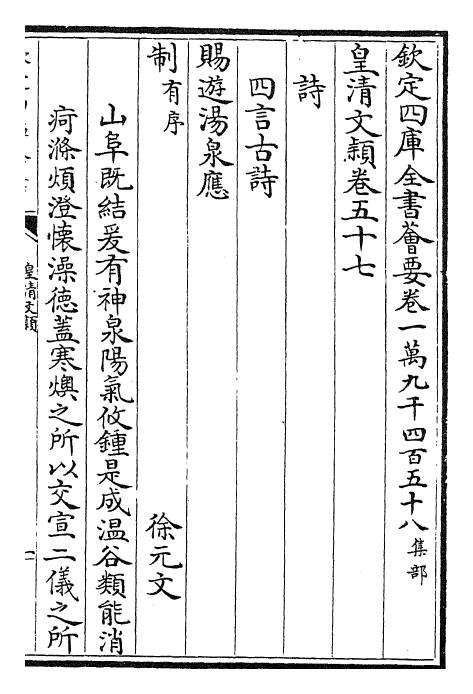 欽定四庫全書薈要卷一萬九千四百五十八集部
皇清文穎卷五十七
詩
四言古詩
賜遊湯泉應
制有序
徐元文
山阜既結爰有神泉陽氣攸鍾是成温谷類能消
疴滌煩澄懐澡徳蓋寒燠之所以交宣二儀之所
皇清文穎